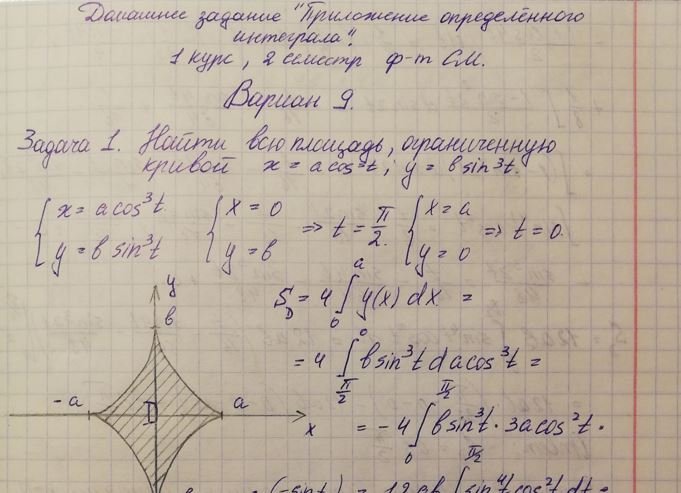 Домашнее задание "Приложение определённого
интеграла".
1 курс, 2 семестр ф-т СМ.
Вариан 9.
Задача 1. Найти всю площадь, ограниченную
кривой x = a cos³t; y = b sin³t.
{ x = a cos³t { x = 0 ⇒ t = π/2. { x = a ⇒ t = 0.
{ y = b sin³t { y = b { y = 0
S_D = 4 ∫₀ᵃ y(x) dx =
= 4 ∫_{π/2}^{0} b sin³t d a cos³t =
= - 4 ∫_{0}^{π/2} b sin³t · 3a cos²t ·
(-sint) = 12ab ∫ sin⁴t cos²t dt =
y
b
-a
D
a
x